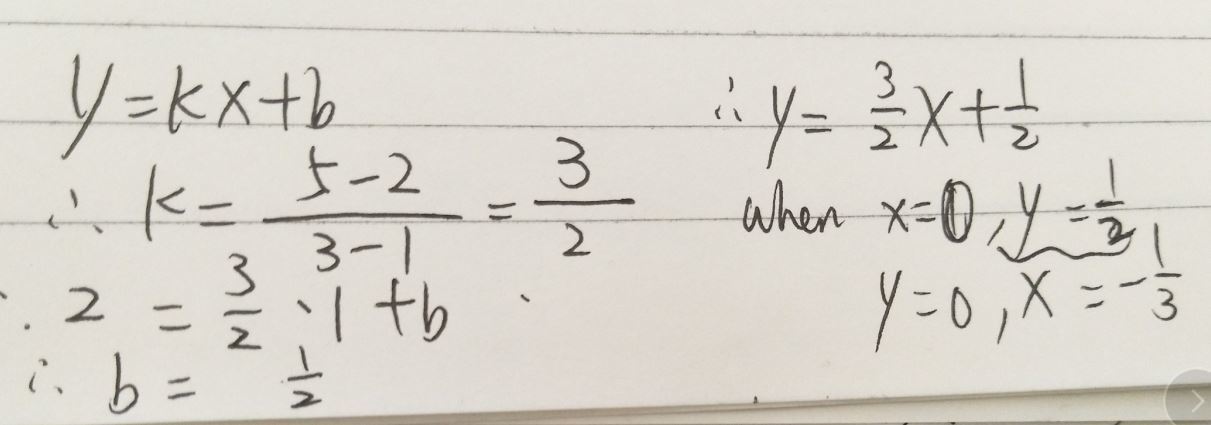 y=kx+b
∴ k = \frac{5-2}{3-1} = \frac{3}{2}
∴ 2 = \frac{3}{2} · 1 + b
∴ b = \frac{1}{2}
∴ y = \frac{3}{2}x + \frac{1}{2}
when x=0, y = \frac{1}{2}
y=0, x = -\frac{1}{3}